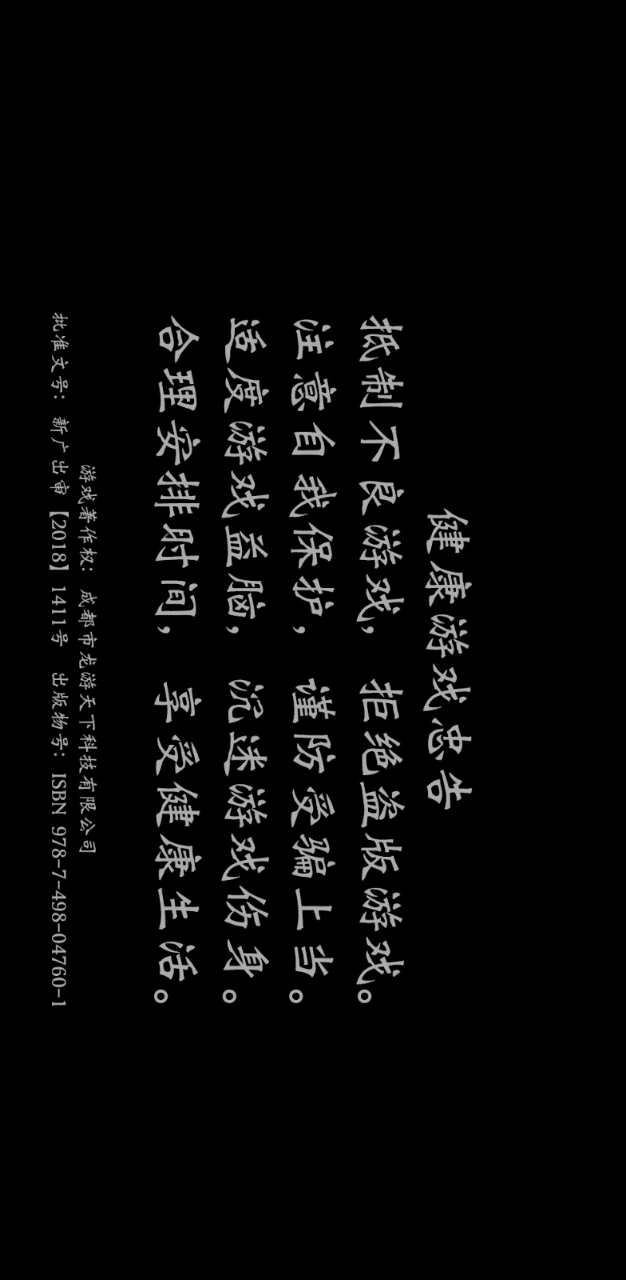 健康游戏忠告
抵制不良游戏，拒绝盗版游戏。
注意自我保护，谨防受骗上当。
适度游戏益脑，沉迷游戏伤身。
合理安排时间，享受健康生活。
游戏著作权：成都市龙游天下科技有限公司
批准文号：新广出审【2018】1411号 出版物号：ISBN 978-7-498-04760-1